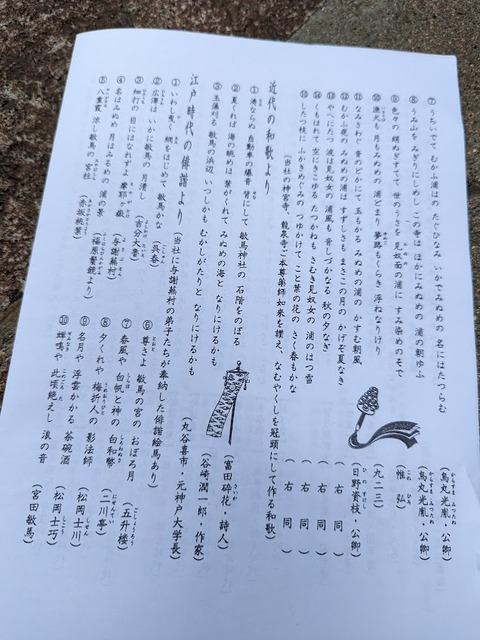 ⑦ うちいでて むかふ浦はの たぐひなみ いかでみぬめの 名にはたつらむ (烏丸光胤・公卿)
⑧ うみ山を みぎりにしめし この寺は ほかにみぬめの 浦の朝ゆふ (烏丸光胤・公卿)
⑨ 世のうさを 見ぬめの浦に すみ染めのそで (惟弘)
⑩ 漁火も 月もみぬめの 浦どまり 夢路もくらき 浮ねなりけり (丸一二三)
⑪ なみまわぐ 音のどかにて 玉もかる みぬめの浦の かすむ朝風 (日野資枝・公卿)
⑫ むかふ夜の みぬめの浦は すずしさも まさこの月の かげぞ夏なき (右 同)
⑬ やへにたつ 波は見奴女の 浦風も 音しづかなる 秋の夕なぎ (右 同)
⑭ くもはれて 空にきこゆる たつかねも さむき見奴女の 浦のはつ雪 (右 同)
⑮ したつ枝に ふかきめぐみの つゆかけて こと葉の花の さく春もかな (右 同)
(当社の神宮寺、龍泉寺ご本尊薬師如来を讃え、なむやくしを冠頭にして作る和歌)
近代の和歌より
① 湊ならぬ自動車の爆音 背にして 敏馬神社の 石階をのぼる (富田砕花・詩人)
② 夏くれば 海の眺めは 葉がくれて みぬめの海と なりにけるかも (谷崎潤一郎・作家)
③ 玉藻刈る 敏馬の浜辺 いつしかも むかしがたりと なりにけるかも (丸谷喜市・元神戸大学長)
江戸時代の俳諧より (当社に与謝蕪村の弟子たちが奉納した俳諧絵馬あり)
① いわし曳く 網もはじめて 敏馬かな (呉春)
② 広澤は いかに敏馬の 月清し (吉分大魯)
③ 細打の 目にはなれずよ 摩耶ヶ嶽 (与謝蕪村)
④ 名はみぬめ 月はみるめの 浦の景 (福原鬢鏡より)
⑤ 八重霞 涼し敏馬の 宮柱 (赤坂桃葉)
⑥ 尊さよ 敏馬の宮の おぼろ月 (五升楼)
⑦ 春風や 白帆と神の 白和幣 (二川亭)
⑧ 夕ぐれや 梅折人の 影法師 (松岡士川)
⑨ 名月や 浮雲かかる 茶碗酒 (松岡士巧)
⑩ 蝉鳴や 此頃絶えし 浪の音 (宮田敏馬)